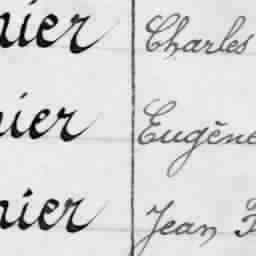 nier Charles
nier Eugène
nier Jean